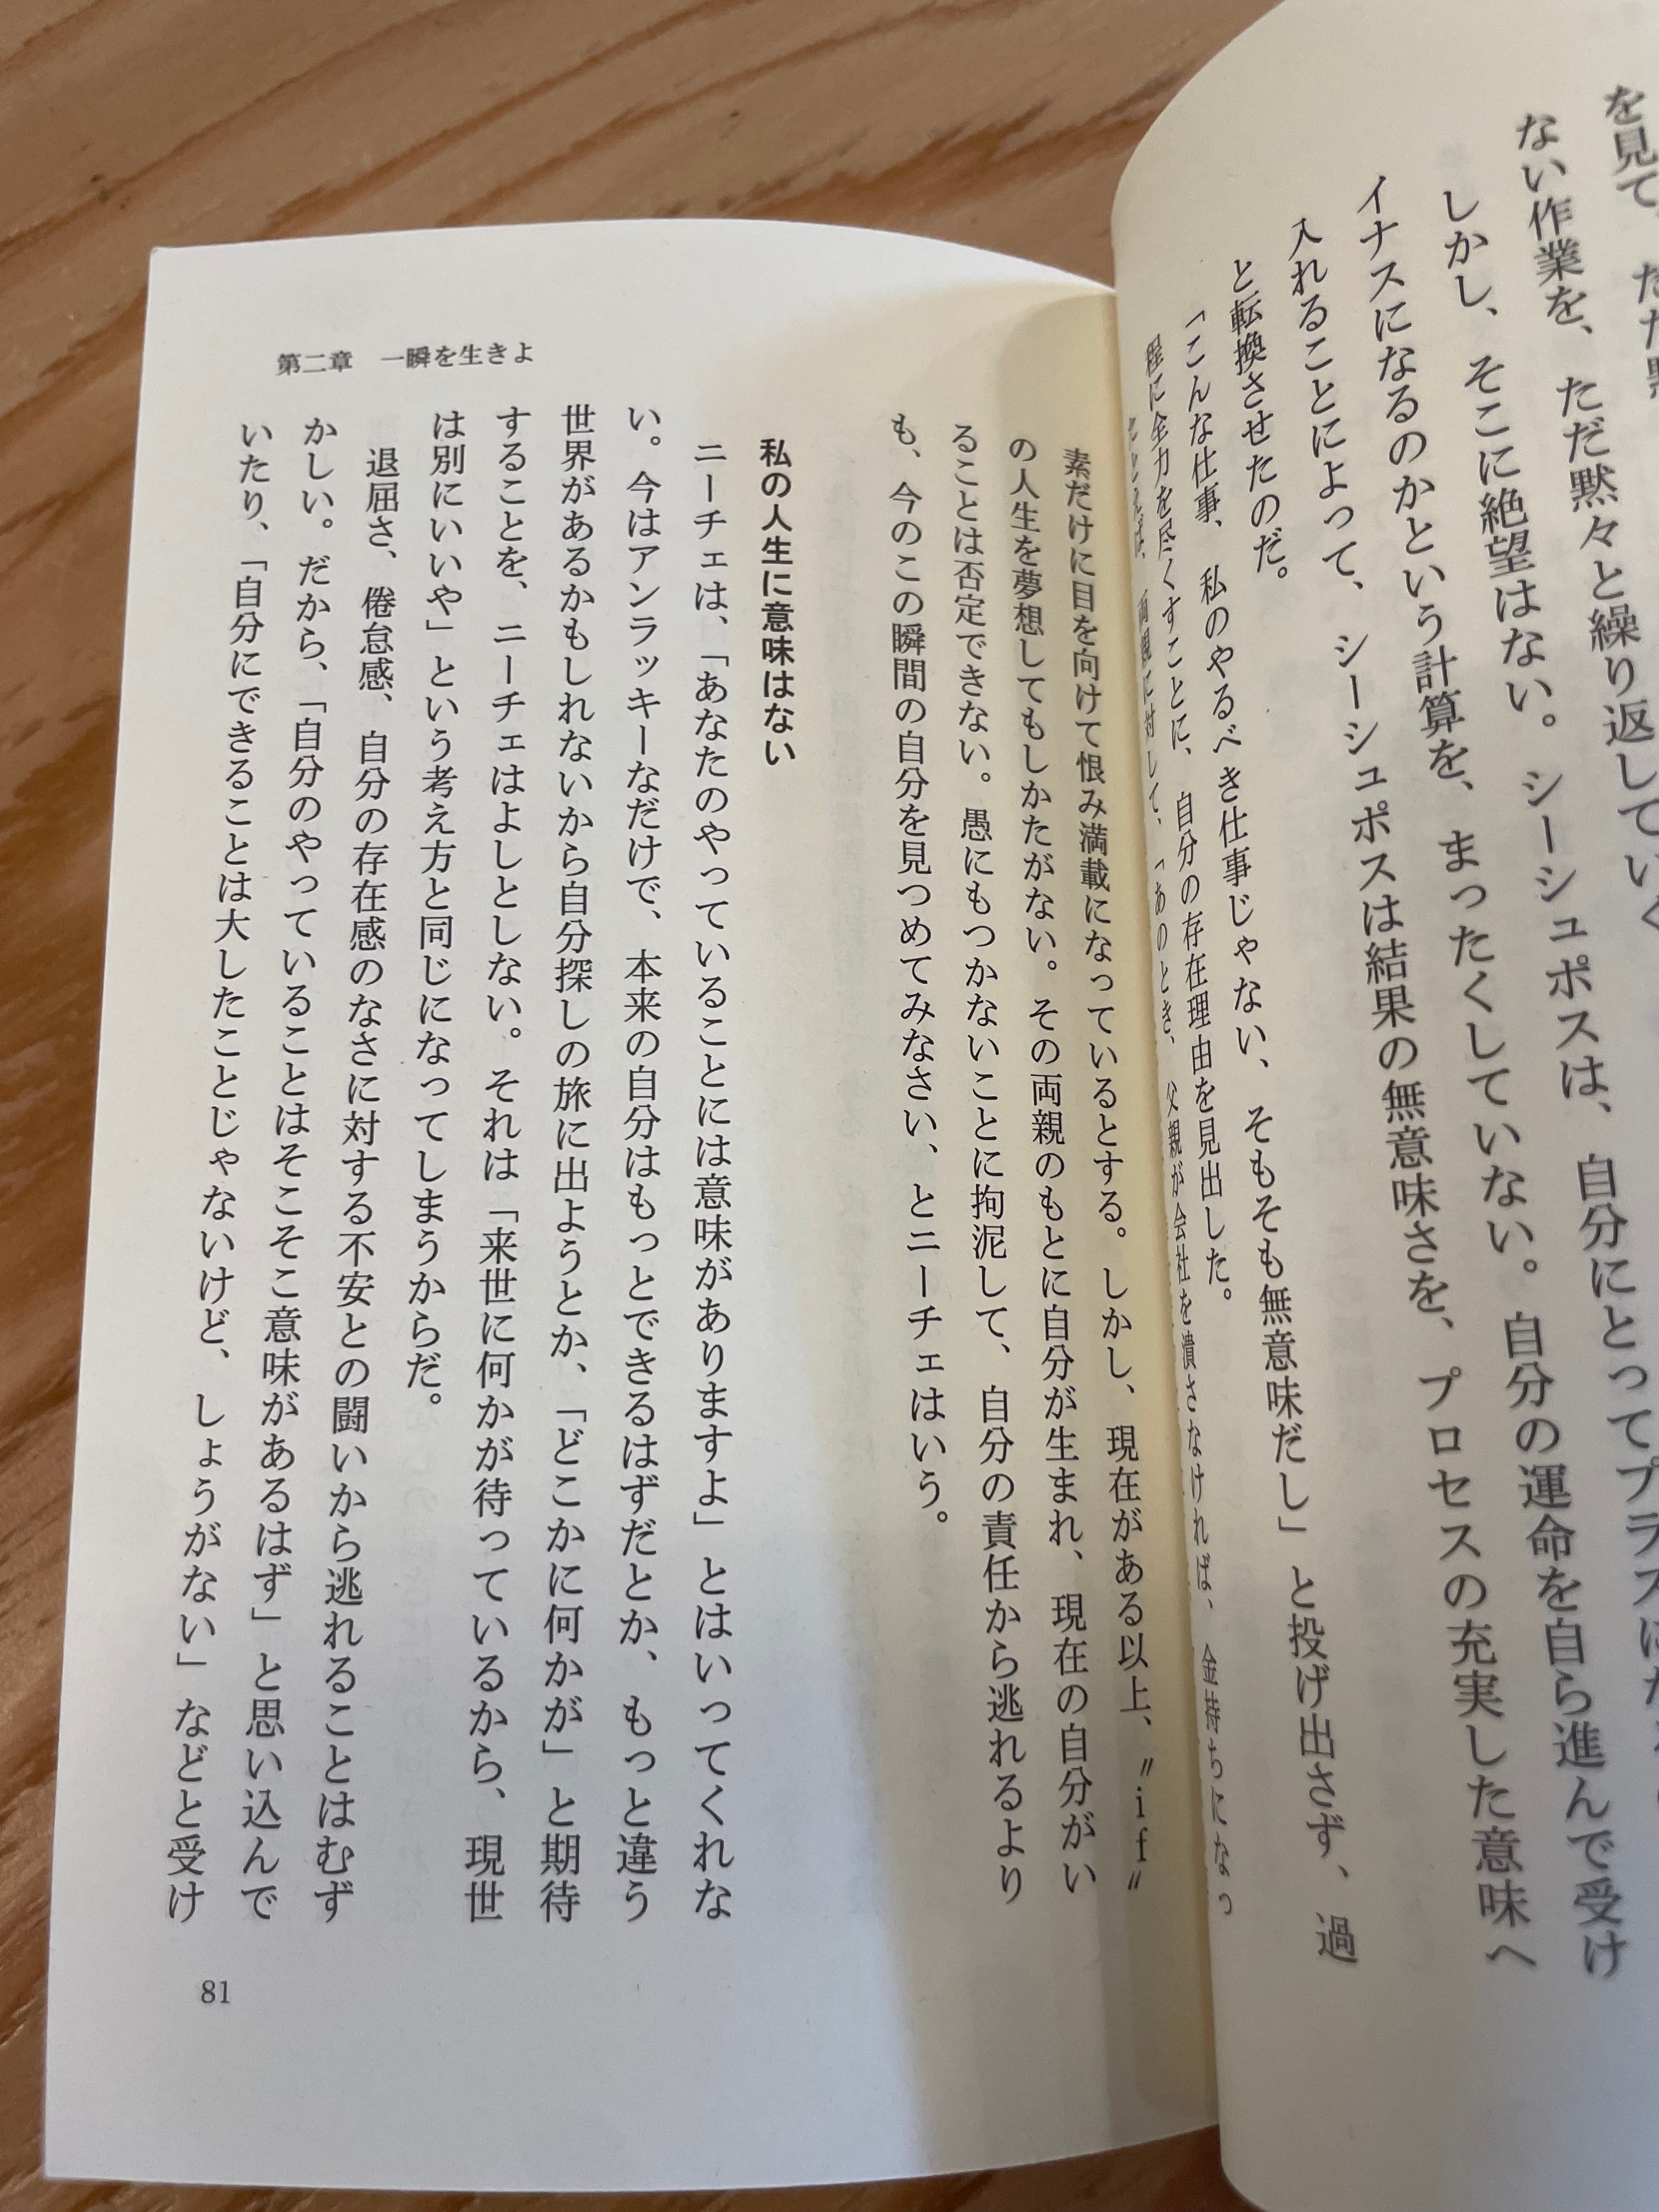 を見て、ただ黙
ない作業を、ただ黙々と繰り返していく
しかし、そこに絶望はない。シーシュポスは、自分にとってプラスになる
イナスになるのかという計算を、まったくしていない。自分の運命を自ら進んで受け
入れることによって、シーシュポスは結果の無意味さを、プロセスの充実した意味へ
と転換させたのだ。
「こんな仕事、私のやるべき仕事じゃない、そもそも無意味だし」と投げ出さず、過
程に全力を尽くすことに、自分の存在理由を見出した。
たとえば、両親に対して、「あのとき、父親が会社を潰さなければ、金持ちになっ
素だけに目を向けて恨み満載になっているとする。しかし、現在がある以上、〝if〟
の人生を夢想してもしかたがない。その両親のもとに自分が生まれ、現在の自分がい
ることは否定できない。愚にもつかないことに拘泥して、自分の責任から逃れるより
も、今のこの瞬間の自分を見つめてみなさい、とニーチェはいう。
私の人生に意味はない
ニーチェは、「あなたのやっていることには意味がありますよ」とはいってくれな
い。今はアンラッキーなだけで、本来の自分はもっとできるはずだとか、もっと違う
世界があるかもしれないから自分探しの旅に出ようとか、「どこかに何かが」と期待
することを、ニーチェはよしとしない。それは「来世に何かが待っているから、現世
は別にいいや」という考え方と同じになってしまうからだ。
退屈さ、倦怠感、自分の存在感のなさに対する不安との闘いから逃れることはむず
かしい。だから、「自分のやっていることはそこそこ意味があるはず」と思い込んで
いたり、「自分にできることは大したことじゃないけど、しょうがない」などと受け
第二章　一瞬を生きよ
81